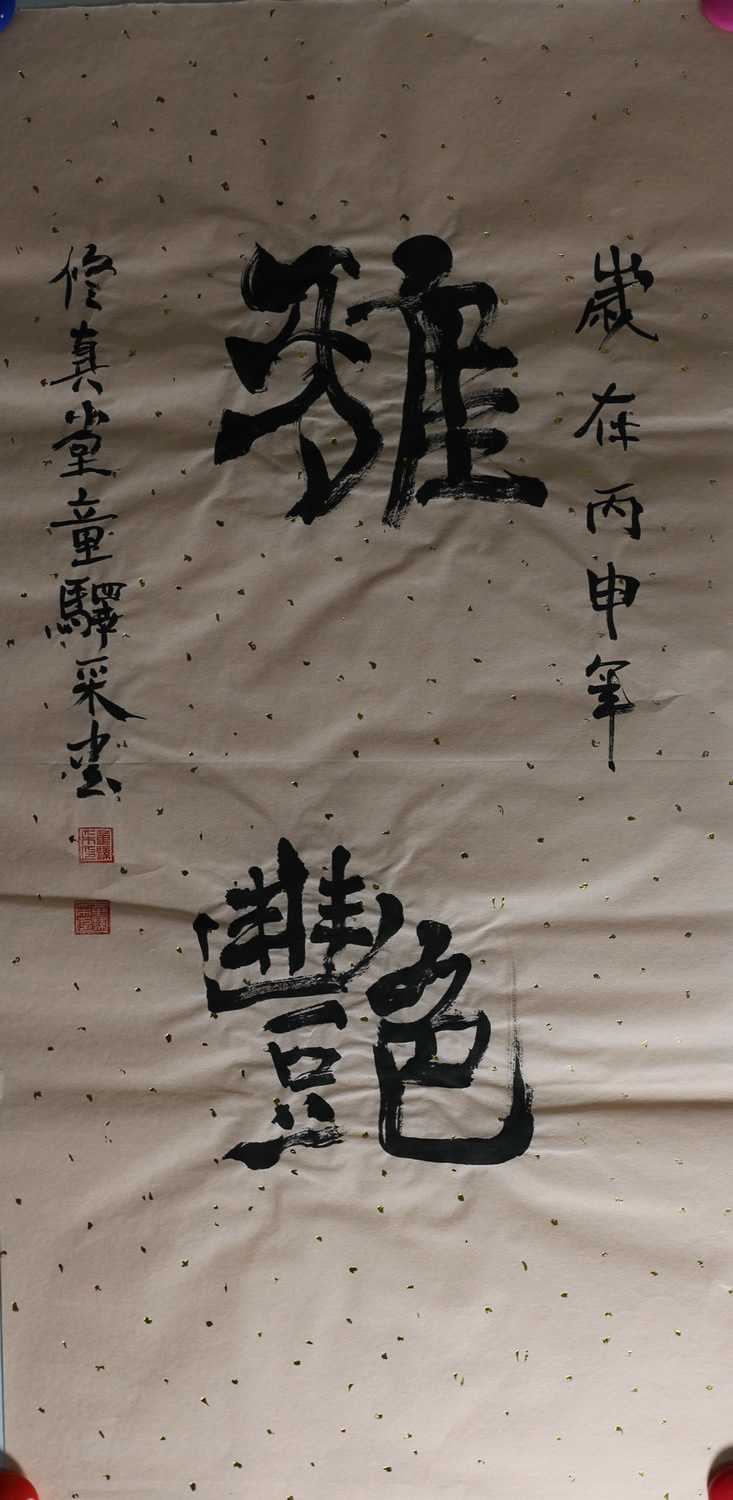 歲在丙申年
雅艷
修真堂童驛采書